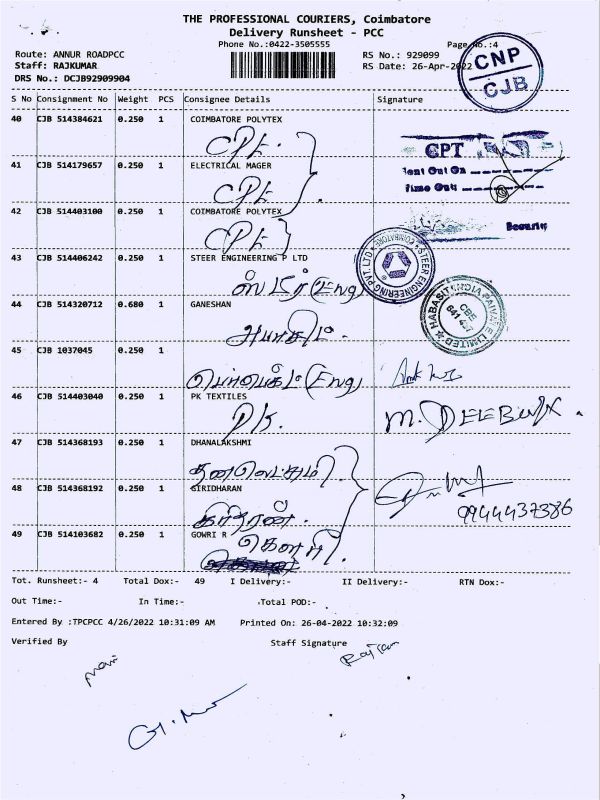 THE PROFESSIONAL COURIERS, Coimbatore
Delivery Runsheet - PCC
Phone No.:0422-3505555
Page No.:4
Route: ANNUR ROADPCC
RS No.: 929099
Staff: RAJKUMAR
RS Date: 26-Apr-2022
DRS No.: DCJB92909904
CNP
CJB
S No Consignment No Weight PCS Consignee Details Signature
40 CJB 514384621 0.250 1 COIMBATORE POLYTEX
CPT
41 CJB 514179657 0.250 1 ELECTRICAL MAGER
Time Out
42 CJB 514403100 0.250 1 COIMBATORE POLYTEX
Security
43 CJB 514406242 0.250 1 STEER ENGINEERING P LTD
STEER ENGINEERING PVT. LTD
COIMBATORE
ஸ்டீர் (Eng)
44 CJB 514320712 0.680 1 GANESHAN
HABASIT INDIA PRIVATE LIMITED
CBE
45 CJB 1037045 0.250 1
(Eng)
46 CJB 514403040 0.250 1 PK TEXTILES
PK.
47 CJB 514368193 0.250 1 DHANALAKSHMI
தனலெட்சுமி
48 CJB 514368192 0.250 1 GIRIDHARAN
கிரிதரன்.
9944437386
49 CJB 514103682 0.250 1 GOWRI R
கௌரி
Tot. Runsheet:- 4 Total Dox:- 49 I Delivery:- II Delivery:- RTN Dox:-
Out Time:- In Time:- Total POD:-
Entered By :TPCPCC 4/26/2022 10:31:09 AM Printed On: 26-04-2022 10:32:09
Verified By Staff Signature